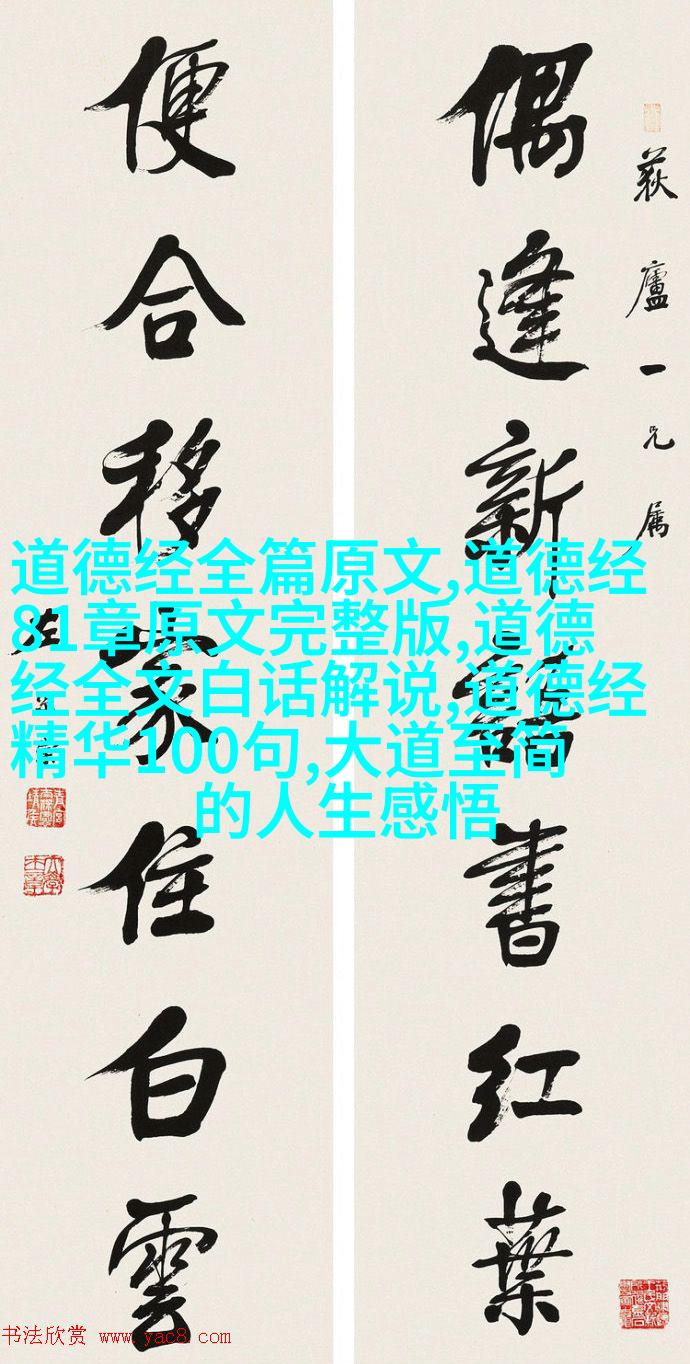 荻廬一兄屬
偶逢新語書红葉
便合移家住白雲
道德经全篇原文,道德经
81章原文完整版,道德
经全文白话解说,道德经
精华100句,大道至简
的人生感悟
书法欣赏 www.yac8.com